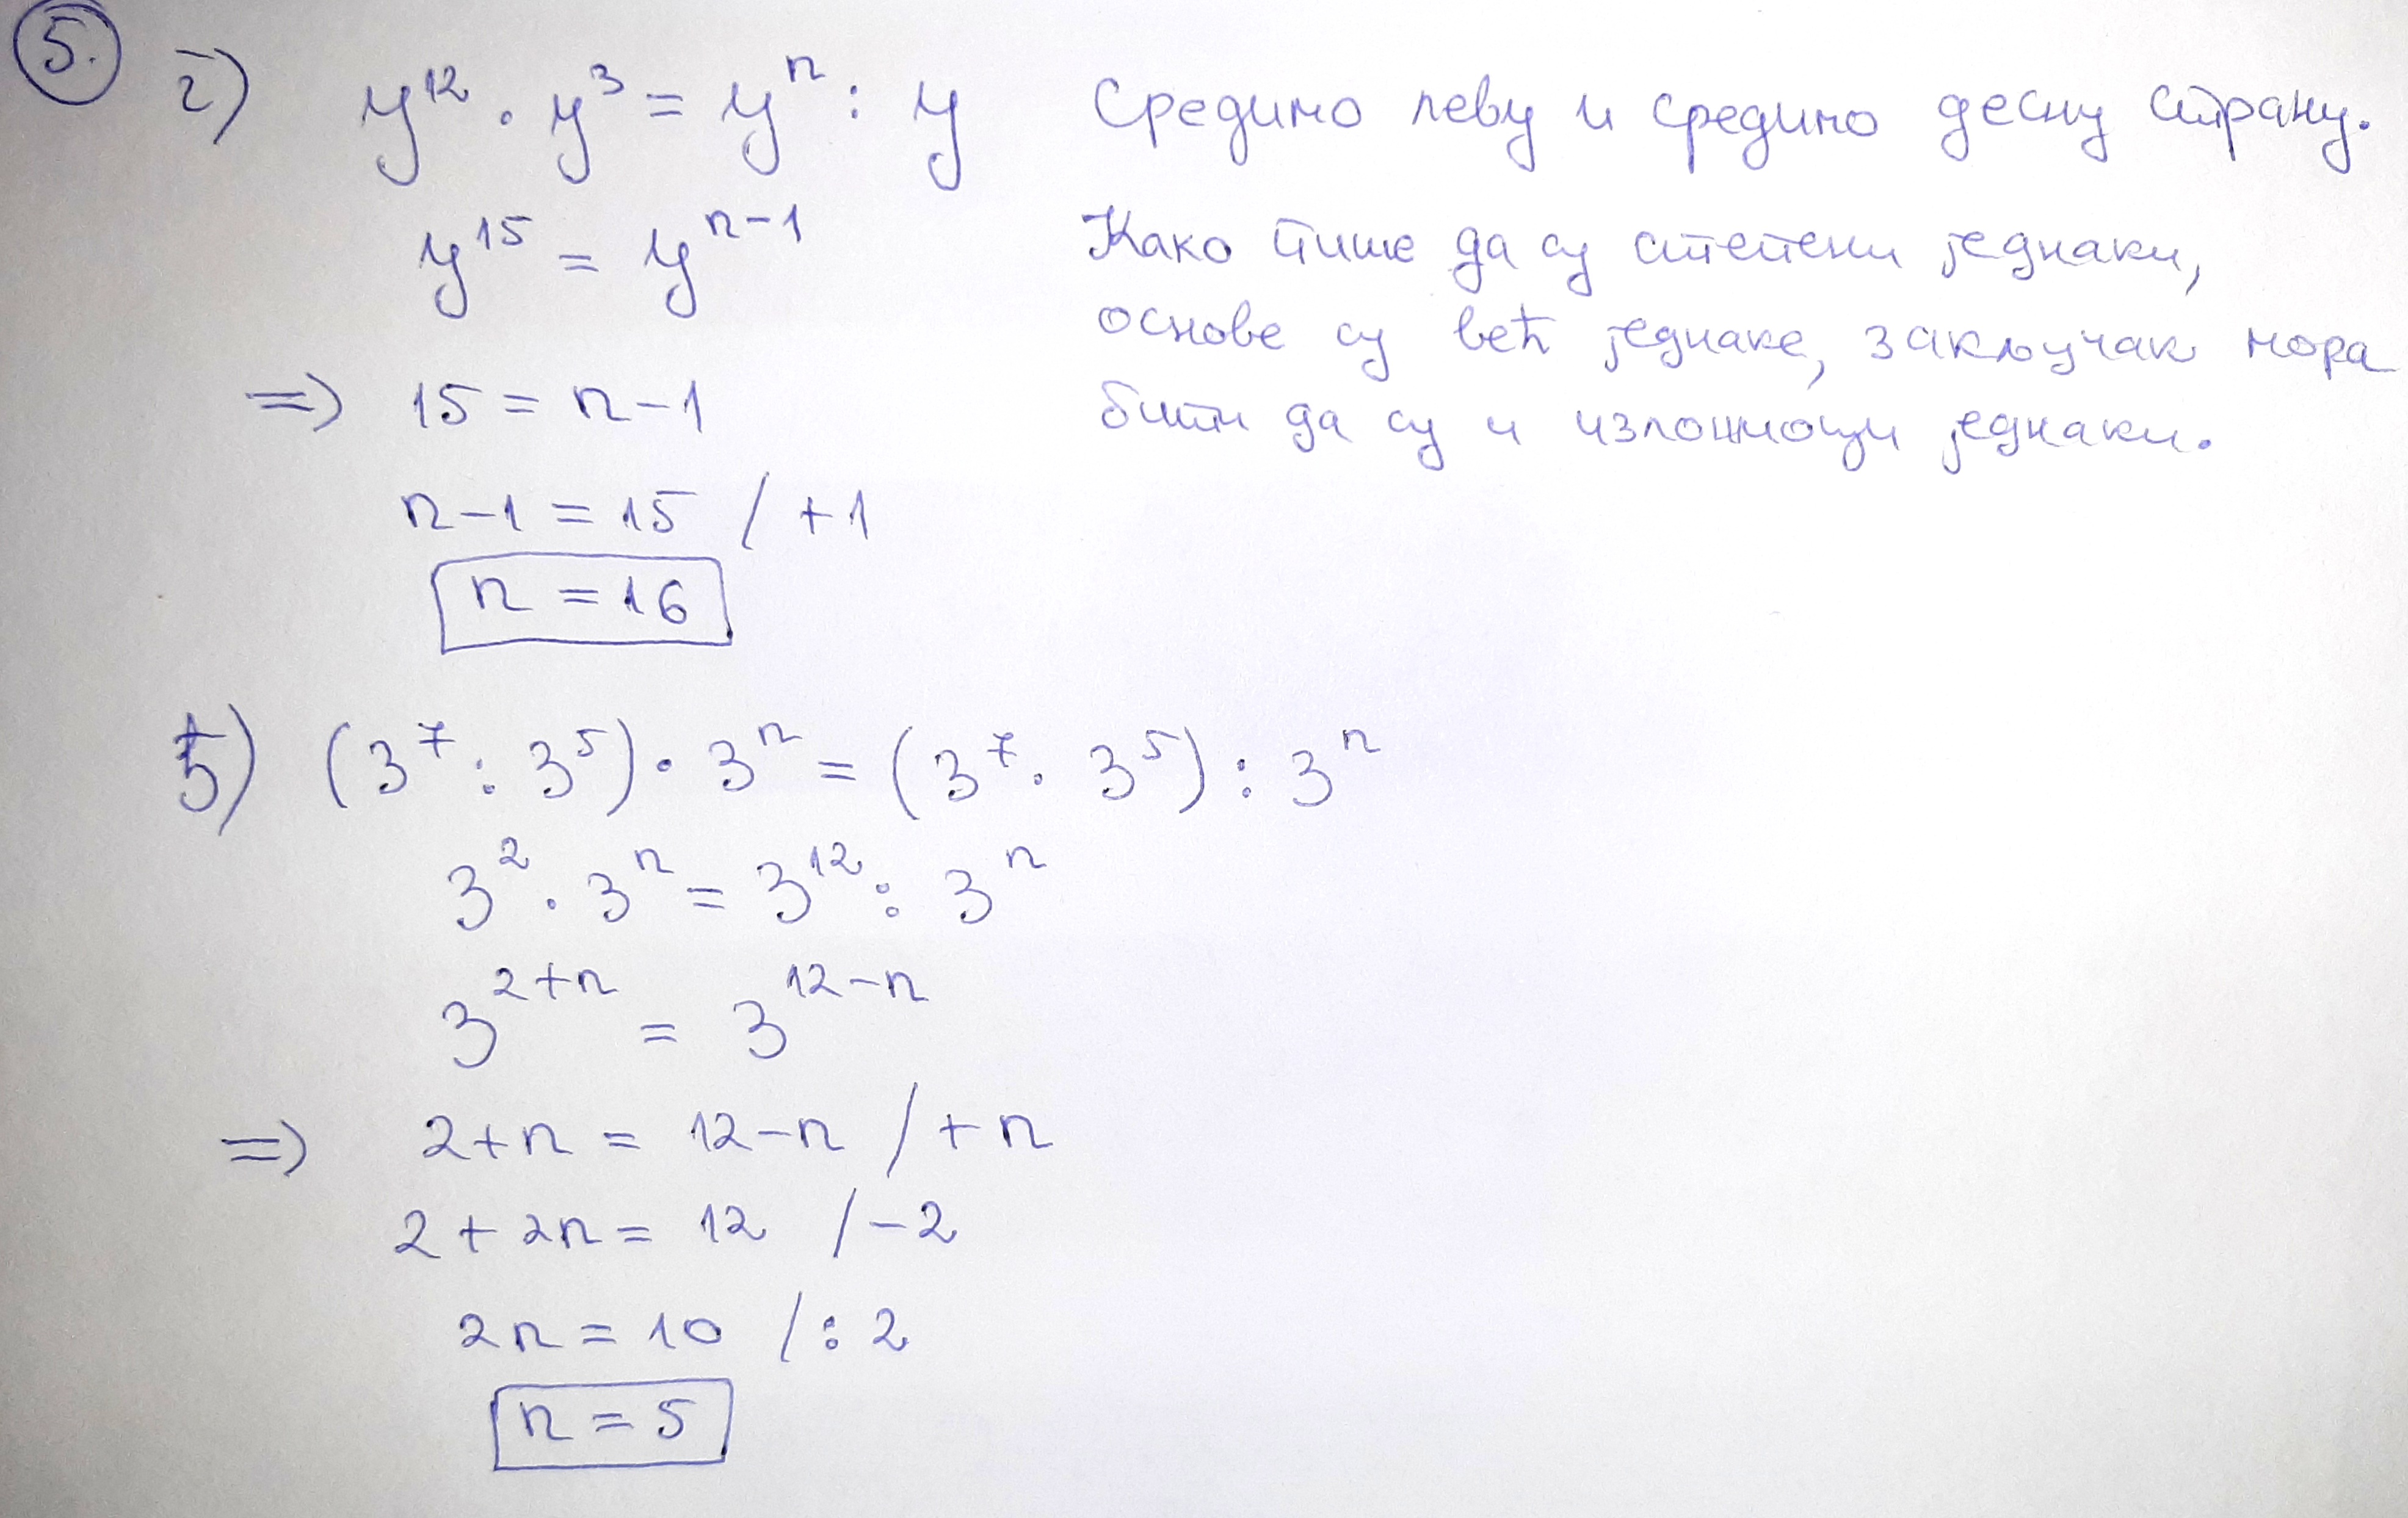 5.
г) y¹² · y³ = yⁿ : y Средимо леву и средимо десну страну.
y¹⁵ = yⁿ⁻¹ Како пише да су степени једнаки,
основе су већ једнаке, закључак мора
=> 15 = n-1 бити да су и изложиоци једнаки.
n-1 = 15 / +1
n = 16
ђ) (3⁷ : 3⁵) · 3ⁿ = (3⁷ · 3⁵) : 3ⁿ
3² · 3ⁿ = 3¹² : 3ⁿ
3²⁺ⁿ = 3¹²⁻ⁿ
=> 2+n = 12-n / +n
2 + 2n = 12 / -2
2n = 10 / : 2
n = 5